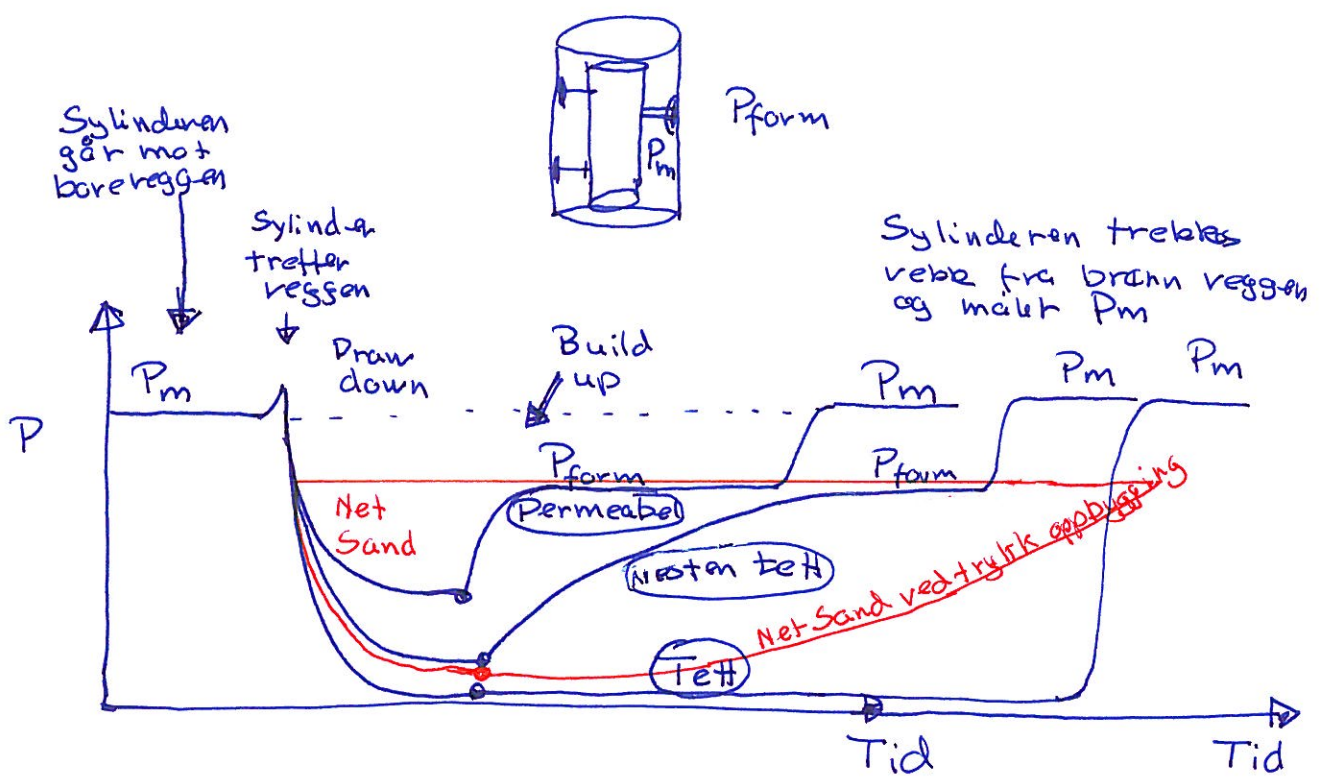 Pform
Pm
Sylinderen
går mot
boreveggen
Sylinder
treffer
veggen
Sylinderen trekkes
vekk fra brønn veggen
og måler Pm
Draw
down
Build
up
Pm
Pm
Pm
Pm
P
Pform
Pform
Net
Sand
Permeabel
Nesten tett
Net Sand ved trykk oppbygging
Tett
Tid
Tid